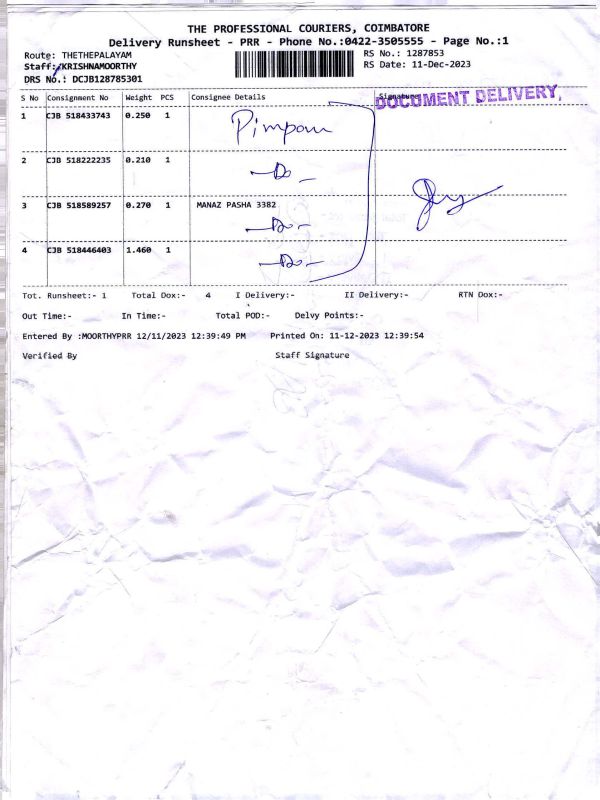 THE PROFESSIONAL COURIERS, COIMBATORE
Delivery Runsheet - PRR - Phone No.:0422-3505555 - Page No.:1
Route: THETHEPALAYAM
RS No.: 1287853
Staff:/KRISHNAMOORTHY
RS Date: 11-Dec-2023
DRS No.: DCJB128785301
S No Consignment No Weight PCS Consignee Details Signature
DOCUMENT DELIVERY.
1 CJB 518433743 0.250 1
2 CJB 518222235 0.210 1 -Do-
3 CJB 518589257 0.270 1 MANAZ PASHA 3382
-Do-
4 CJB 518446403 1.460 1 -Do-
Tot. Runsheet:- 1 Total Dox:- 4 I Delivery:- II Delivery:- RTN Dox:-
Out Time:- In Time:- Total POD:- Delvy Points:-
Entered By :MOORTHYPRR 12/11/2023 12:39:49 PM Printed On: 11-12-2023 12:39:54
Verified By Staff Signature